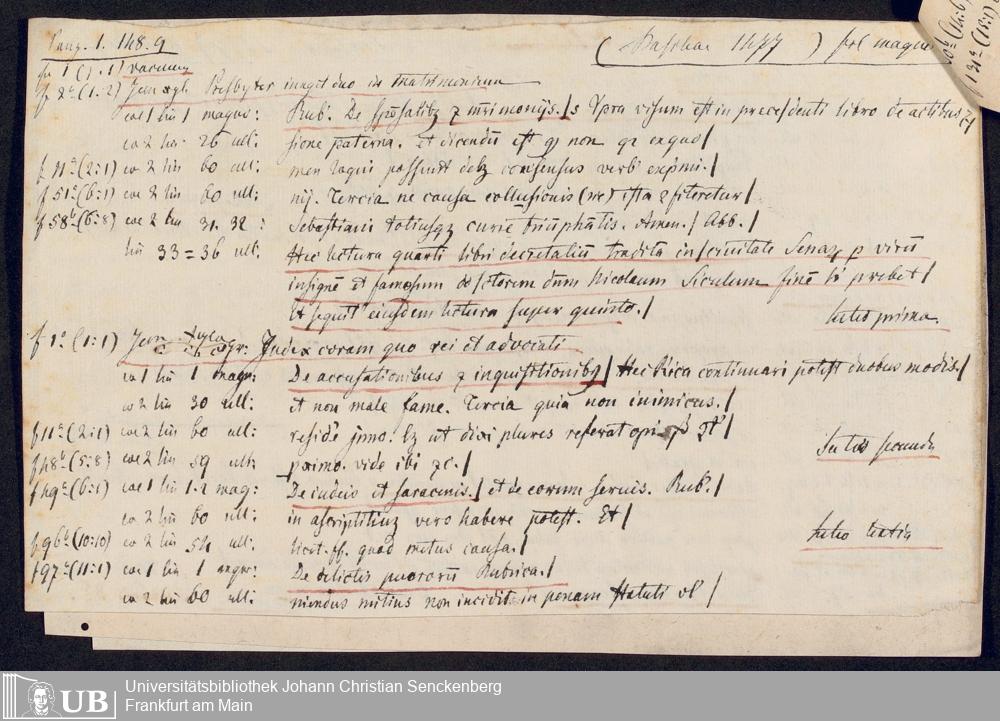 Panz. 1. 148. 9 ( Basileae 1477 ) fol magn
f 1 (1:1) vacuum
f 2ᵃ (1:2) Presbyter iungit duo in matrimonium
col 1 lin 1 magn: Rub. De sponsalibꝫ ⁊ mr̄imonijs. / s Ypra visum est in precedenti libro de actibus
co 2 lin 26 ult: sione paterna. Et dicendū est ꝙ non qꝛ ex quo /
f 11ᵃ (2:1) co 2 lin 60 ult: men loqui possunt debꝫ consensus verb' exp̄mi. /
f 51ᵃ (6:1) co 2 lin 60 ult: nij. Tercia ne causa collusionis (ne) ista ꝓfiteretur /
f 58ᵇ (6:8) col 2 lin 31. 32 : Sebastiani totiusqꝫ curie triūphātis. Amen. / Abb. /
lin 33 = 36 ult: Hec lectura quarti libri decretaliū tradita in ciuitate Senaꝝ ꝑ virū
insignē et famosum doctorem dnm Nicolaum Siculum finē hꝰ prebet /
Et sequit' eiusdem lectura super quinto. /
Sectio prima.
f 1ᵃ (1:1) Judex coram quo rei et advocati
co 1 lin 1 magn: De accusationibus ⁊ inquisitionibꝫ / Hec Rica continuari potest duobus modis. /
co 2 lin 30 ult: et non male fame. Tercia quia non inimicus. /
f 11ᵃ (2:1) co 2 lin 60 ult: plures referat
Sectio secunda
f 48ᵇ (5:8) col 2 lin 59 ult: pximo. vide ibi ⁊c. /
f 49ᵃ (6:1) col 1 lin 1. 2 mag: De iudeis et saracenis. / et de eorum seruis. Rub'. /
co 2 lin 60 ult: in ascriptitiuꝫ vero habere potest. Et /
Sectio tertia
f 96ᵇ (10:10) co 2 lin 54 ult: licet. ff. quod metus causa. /
f 97ᵃ (11:1) col 1 lin 1 magn: De delictis puerorū Rubrica. /
co 2 lin 60 ult: niendus mitius non incidit in penam statuti vl' /
UB
Universitätsbibliothek Johann Christian Senckenberg
Frankfurt am Main